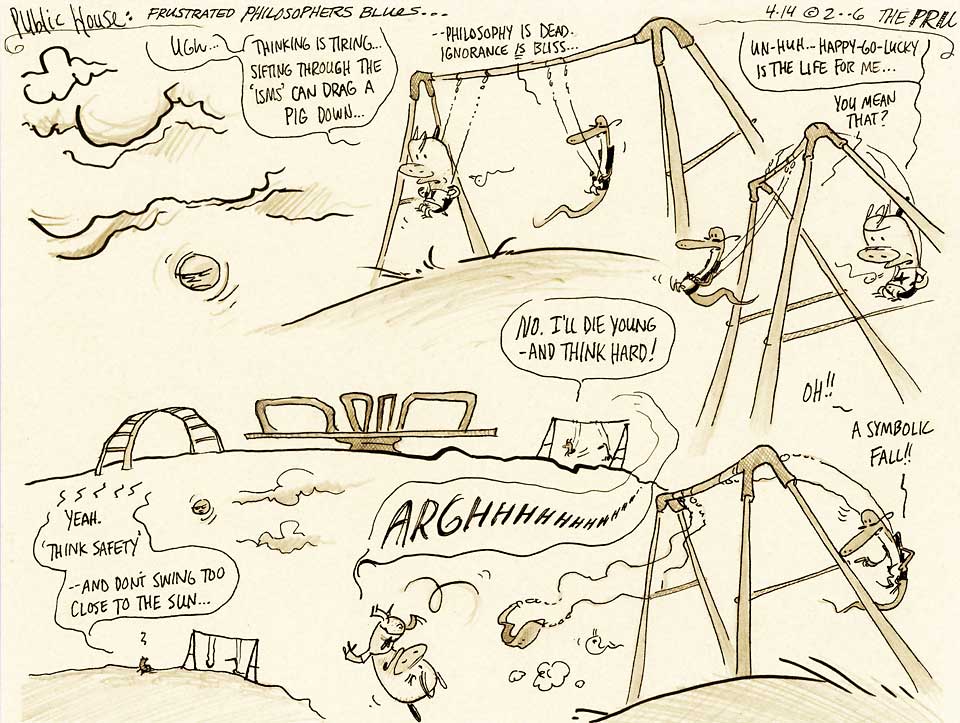 Public House: FRUSTRATED PHILOSOPHERS BLUES...
4.14 © 2..6 THE PRU
UGH...
THINKING IS TIRING...
SIFTING THROUGH THE
'ISMS' CAN DRAG A
PIG DOWN...
--PHILOSOPHY IS DEAD.
IGNORANCE IS BLISS...
UN-HUH... HAPPY-GO-LUCKY
IS THE LIFE FOR ME...
YOU MEAN
THAT?
NO. I'LL DIE YOUNG
-AND THINK HARD!
OH!!
A SYMBOLIC
FALL!!
ARGHHHHHHHHHHH
YEAH.
'THINK SAFETY'
--AND DON'T SWING TOO
CLOSE TO THE SUN...